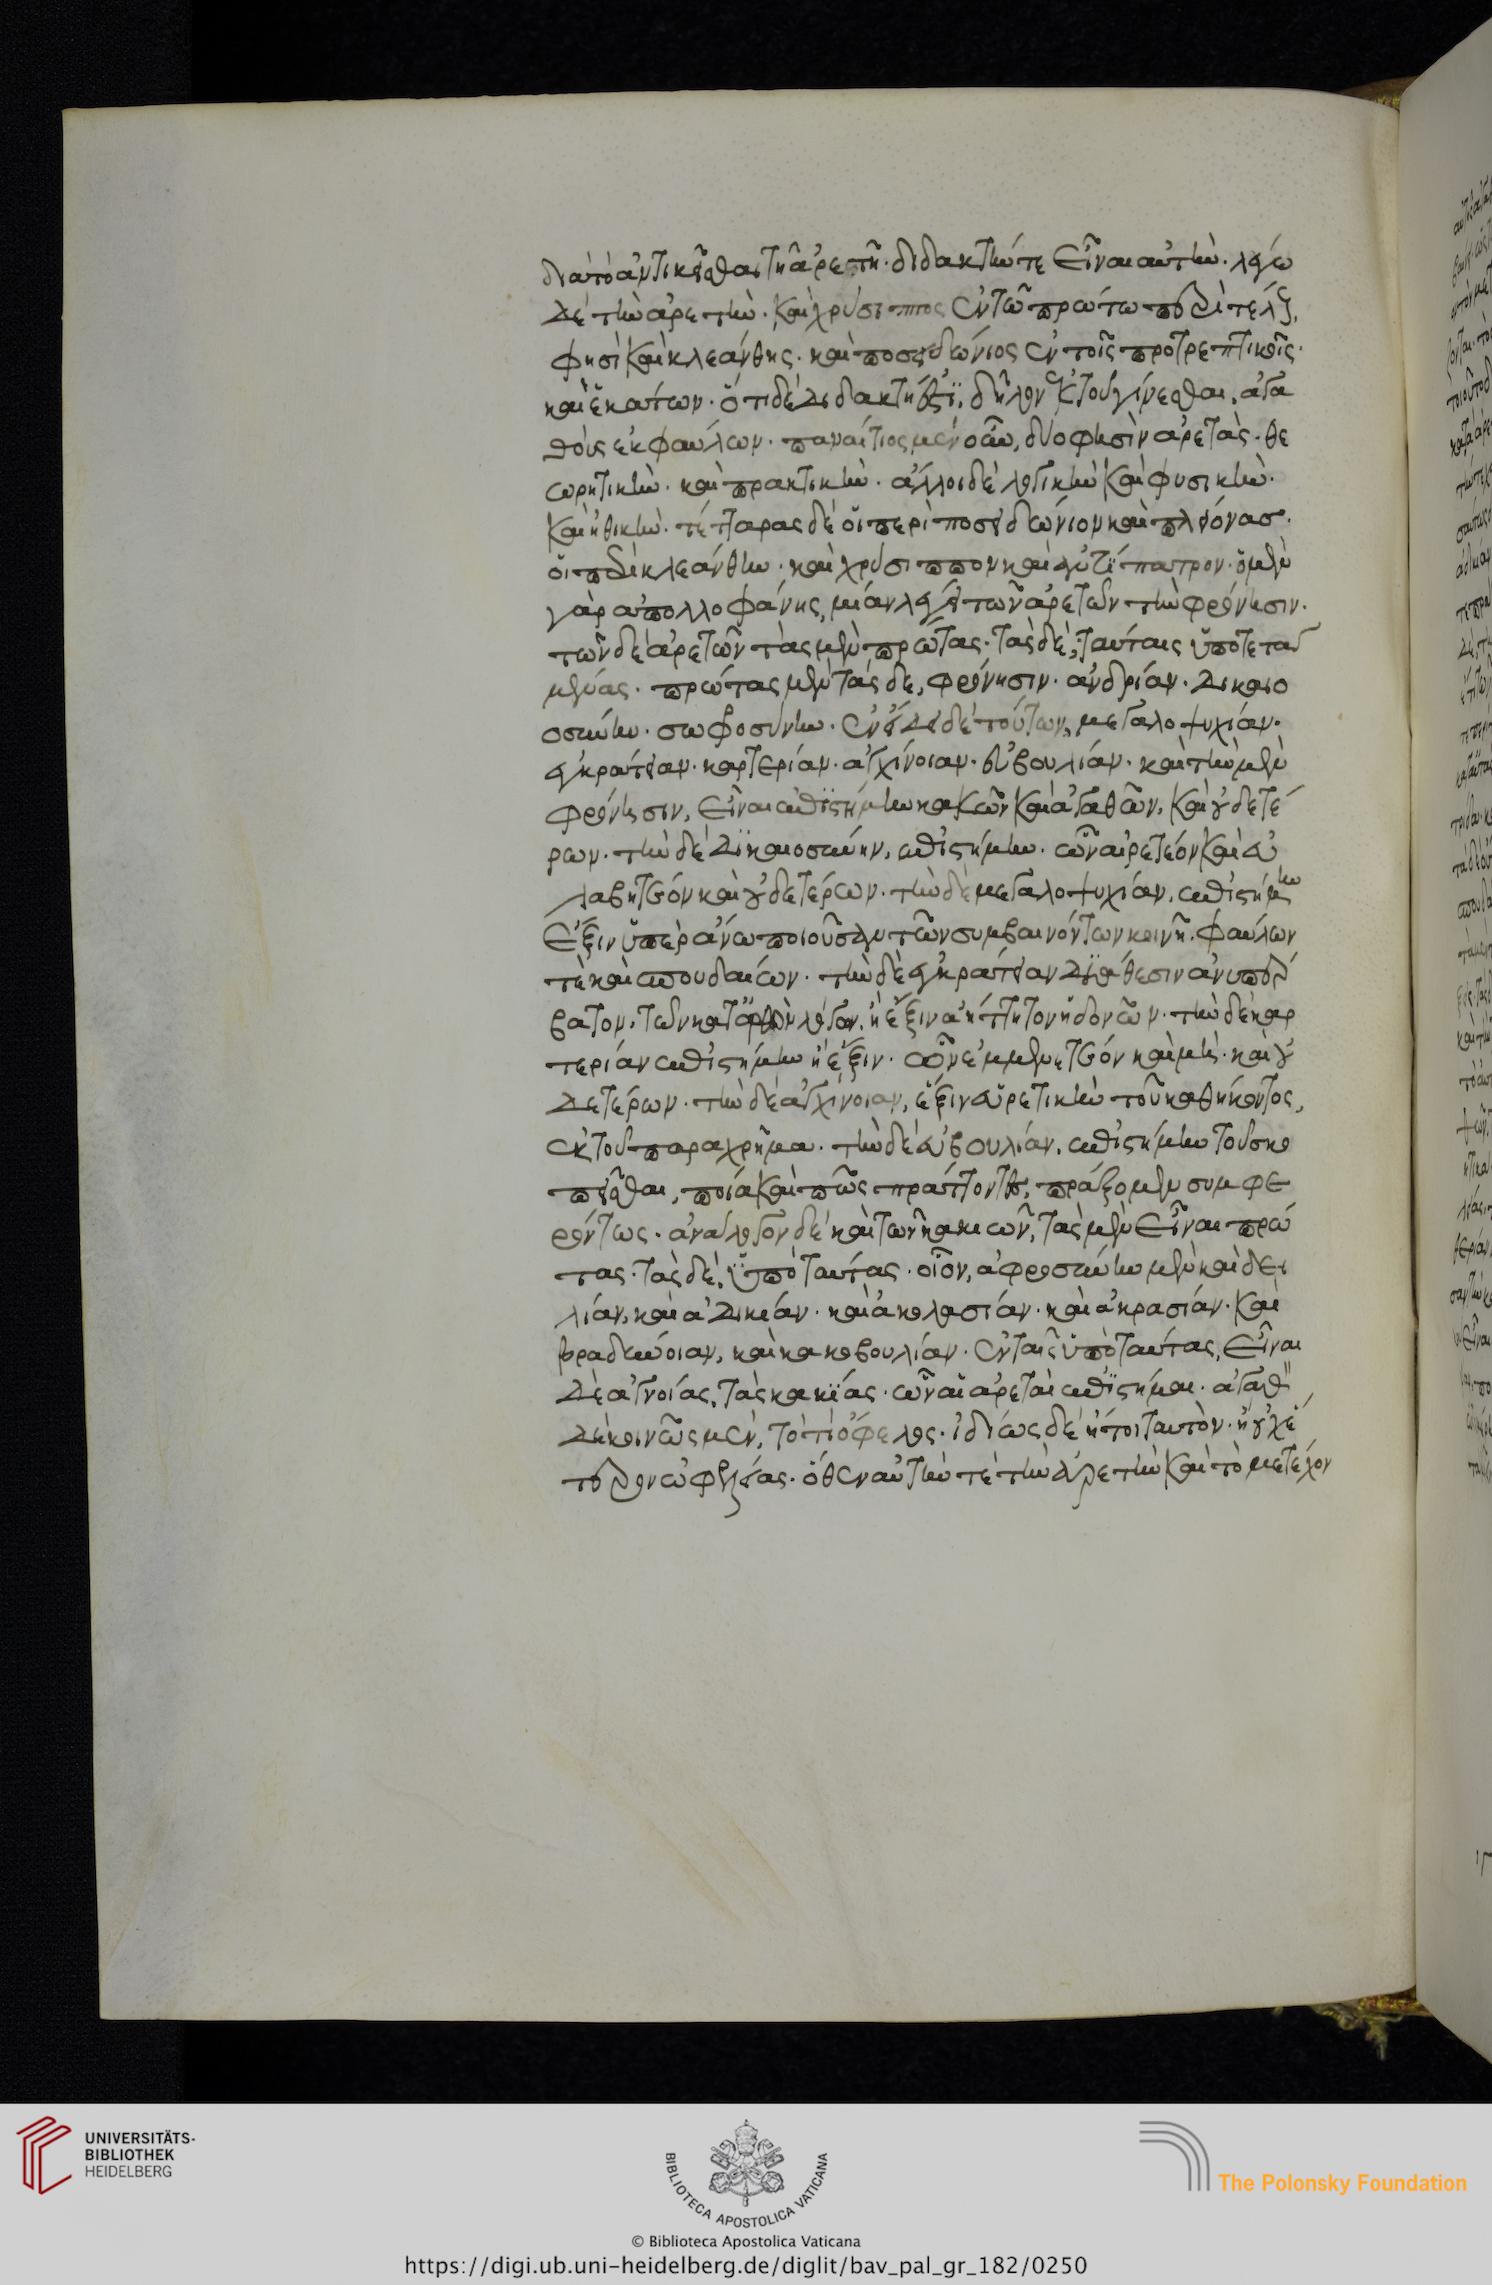 διὰ τὸ ἀντικεῖσθαι τῆ ἀρετῆ· διδακτήν τε εἶναι αὐτήν· λέγω
δὲ τὴν ἀρετήν· καὶ χρύσιππος ἐν τῶ πρώτω περὶ τέλους,
φησὶ καὶ κλεάνθης· καὶ ποσειδώνιος ἐν τοῖς προτρεπτικοῖς·
καὶ ἑκάτων· ὅτι δὲ διδακτή ἐστι, δῆλον ἐκ τοῦ γίνεσθαι, ἀγα
θοὺς ἐκ φαύλων· παναίτιος μὲν οὖν, δύο φησὶν ἀρετάς· θε
ωρητικήν· καὶ πρακτικήν· ἄλλοι δὲ λογικὴν καὶ φυσικήν·
καὶ ἠθικήν· τέτταρας δὲ οἱ περὶ ποσειδώνιον καὶ πλείονας·
οἱ περὶ κλεάνθην· καὶ χρύσιππον καὶ ἀντίπατρον· ὁ μὲν
γὰρ ἀπολλοφάνης, μίαν λέγει τῶν ἀρετῶν τὴν φρόνησιν·
τῶν δὲ ἀρετῶν τὰς μὲν πρώτας· τὰς δὲ, ταύταις ὑποτεταγ
μένας· πρώτας μὲν τάς δε, φρόνησιν· ἀνδρίαν· δικαιο
σύνην· σωφροσύνην· ἐν εἴδει δὲ τούτων, μεγαλοψυχίαν·
ἐγκράτειαν· καρτερίαν· ἀγχίνοιαν· εὐβουλίαν· καὶ τὴν μὲν
φρόνησιν, εἶναι ἐπιστήμην κακῶν καὶ ἀγαθῶν, καὶ οὐδετέ
ρων· τὴν δὲ δικαιοσύνην, ἐπιστήμην· ὧν αἱρετέον καὶ εὐ
λαβητέον καὶ οὐδετέρων· τὴν δὲ μεγαλοψυχίαν, ἐπιστήμην
ἕξιν ὑπεράνω ποιοῦσαν τῶν συμβαινόντων κοινῆ· φαύλων
τὲ καὶ σπουδαίων· τὴν δὲ ἐγκράτειαν διάθεσιν ἀνυπέρ
βατον, τῶν κατ' ὀρθὸν λόγον, ἢ ἕξιν ἀήττητον ἡδονῶν· τὴν δὲ καρ
τερίαν ἐπιστήμην ἢ ἕξιν· ὧν ἐμμενετέον καὶ μὴ· καὶ οὐ
δετέρων· τὴν δὲ ἀγχίνοιαν, ἕξιν εὑρετικὴν τοῦ καθήκοντος,
ἐκ τοῦ παραχρῆμα· τὴν δὲ εὐβουλίαν, ἐπιστήμην τοῦ σκο
πεῖσθαι, ποῖα καὶ πῶς πράττοντες, πράξομεν συμφε
ρόντως· ἀνάλογον δὲ καὶ τῶν κακιῶν, τὰς μὲν εἶναι πρώ
τας· τὰς δὲ, ὑπὸ ταύτας· οἷον, ἀφροσύνην μὲν καὶ δει
λίαν, καὶ ἀδικίαν· καὶ ἀκολασίαν· καὶ ἀκρασίαν· καὶ
βραδύνοιαν, καὶ κακοβουλίαν· ἐν ταῖς ὑπὸ ταύτας, εἶναι
δὲ ἀγνοίας, τὰς κακίας· ὧν αἱ ἀρεταὶ ἐπιστήμαι· ἀγαθὸν
δὲ κοινῶς μὲν, τὸ τὶ ὄφελος· ἰδίως δὲ ἤτοι ταυτὸν· ἢ οὐχ ἕ
τερον ὠφελείας· ὅθεν αὐτήν τὲ τὴν ἀρετὴν καὶ τὸ μετέχον
UNIVERSITÄTS-
BIBLIOTHEK
HEIDELBERG
BIBLIOTECA APOSTOLICA VATICANA
The Polonsky Foundation
© Biblioteca Apostolica Vaticana
https://digi.ub.uni-heidelberg.de/diglit/bav_pal_gr_182/0250